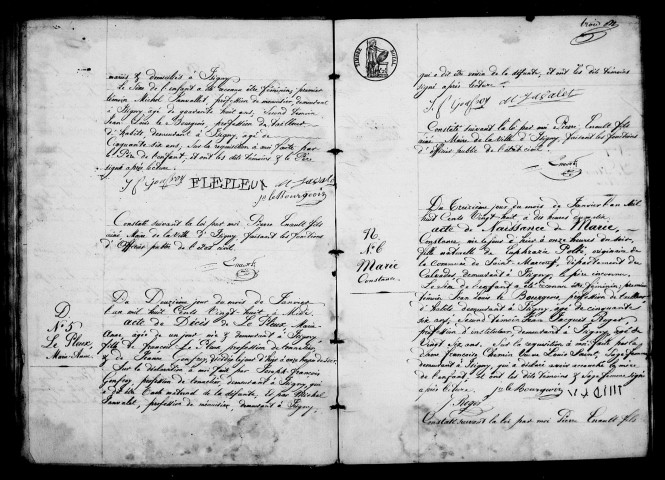 mariés & demeurant à Isigny
Le sexe de l'enfant a été reconnu être féminin, premier
témoin Michel Javalet, profession de menuisier, demeurant
à Isigny, âgé de quarante huit ans, Second témoin
Jean Louis le Bourgeois, profession de tailleur
d'habits demeurant à Isigny, âgé de
Cinquante six ans, Sur la requisition à moi faite par
le Père de l'enfant, et ont les dits témoins & le Père
signé après lecture
J F Godfroy PLEPLEUX M Javalet
J. le Bourgeois
Constaté suivant la loi par moi Pierre Enault fils
Maire de la Ville d'Isigny faisant les fonctions
d'Officier public de l'état civil.
Enault
D
N° 5
Le Pleux
Marie Anne
Du Douzième jour du mois de Janvier
l'an mil huit Cents vingt huit à Midi.
acte de Décès de Le Pleux Marie
Anne, âgée de un jour née & demeurant à Isigny
fille de François Le Pleux, profession de tonnelier
Sur la déclaration à moi faite par Joseph François
Godfroy, profession de tonnelier, demeurant à Isigny, qui
a dit être Oncle maternel de la défunte, et par Michel
Javalet, profession de menuisier, demeurant à Isigny,
TIMBRE ROYAL
qui a dit être voisin de la défunte, et ont les dits témoins
signé après lecture
J F Godfroy M Javalet
Constaté suivant la loi par moi Pierre Enault fils
Maire de la Ville d'Isigny, faisant les fonctions
d'Officier public de l'état civil.
Enault
N
N° 6
Marie
Constance
Du Treizième jour du mois de Janvier l'an Mil
huit Cents Vingt huit à dix heures du matin
acte de Naissance de Marie,
Constance, née le jour d'hier à onze heures du soir
fille naturelle de Euphrasie
la Commune de Saint Marcouf, département du
Calvados, demeurant à Isigny, le père inconnu
Le sexe de l'enfant a été reconnu être féminin, premier
témoin Jean Louis le Bourgeois, profession de tailleur
d'habits demeurant à Isigny, âgé de cinquante
six ans, Second témoin Jean Jacques Roger
profession d'instituteur, demeurant à Isigny, âgé de
Vingt six ans. Sur la requisition à moi faite par la
dame Françoise Chemin Veuve Louis Saint, Sage femme
demeurant à Isigny, qui a déclaré avoir accouché la mère
de l'enfant, et ont les dits témoins & sage femme signé
après lecture.
J. le Bourgeois
Roger
Constaté suivant la loi par moi Pierre Enault fils